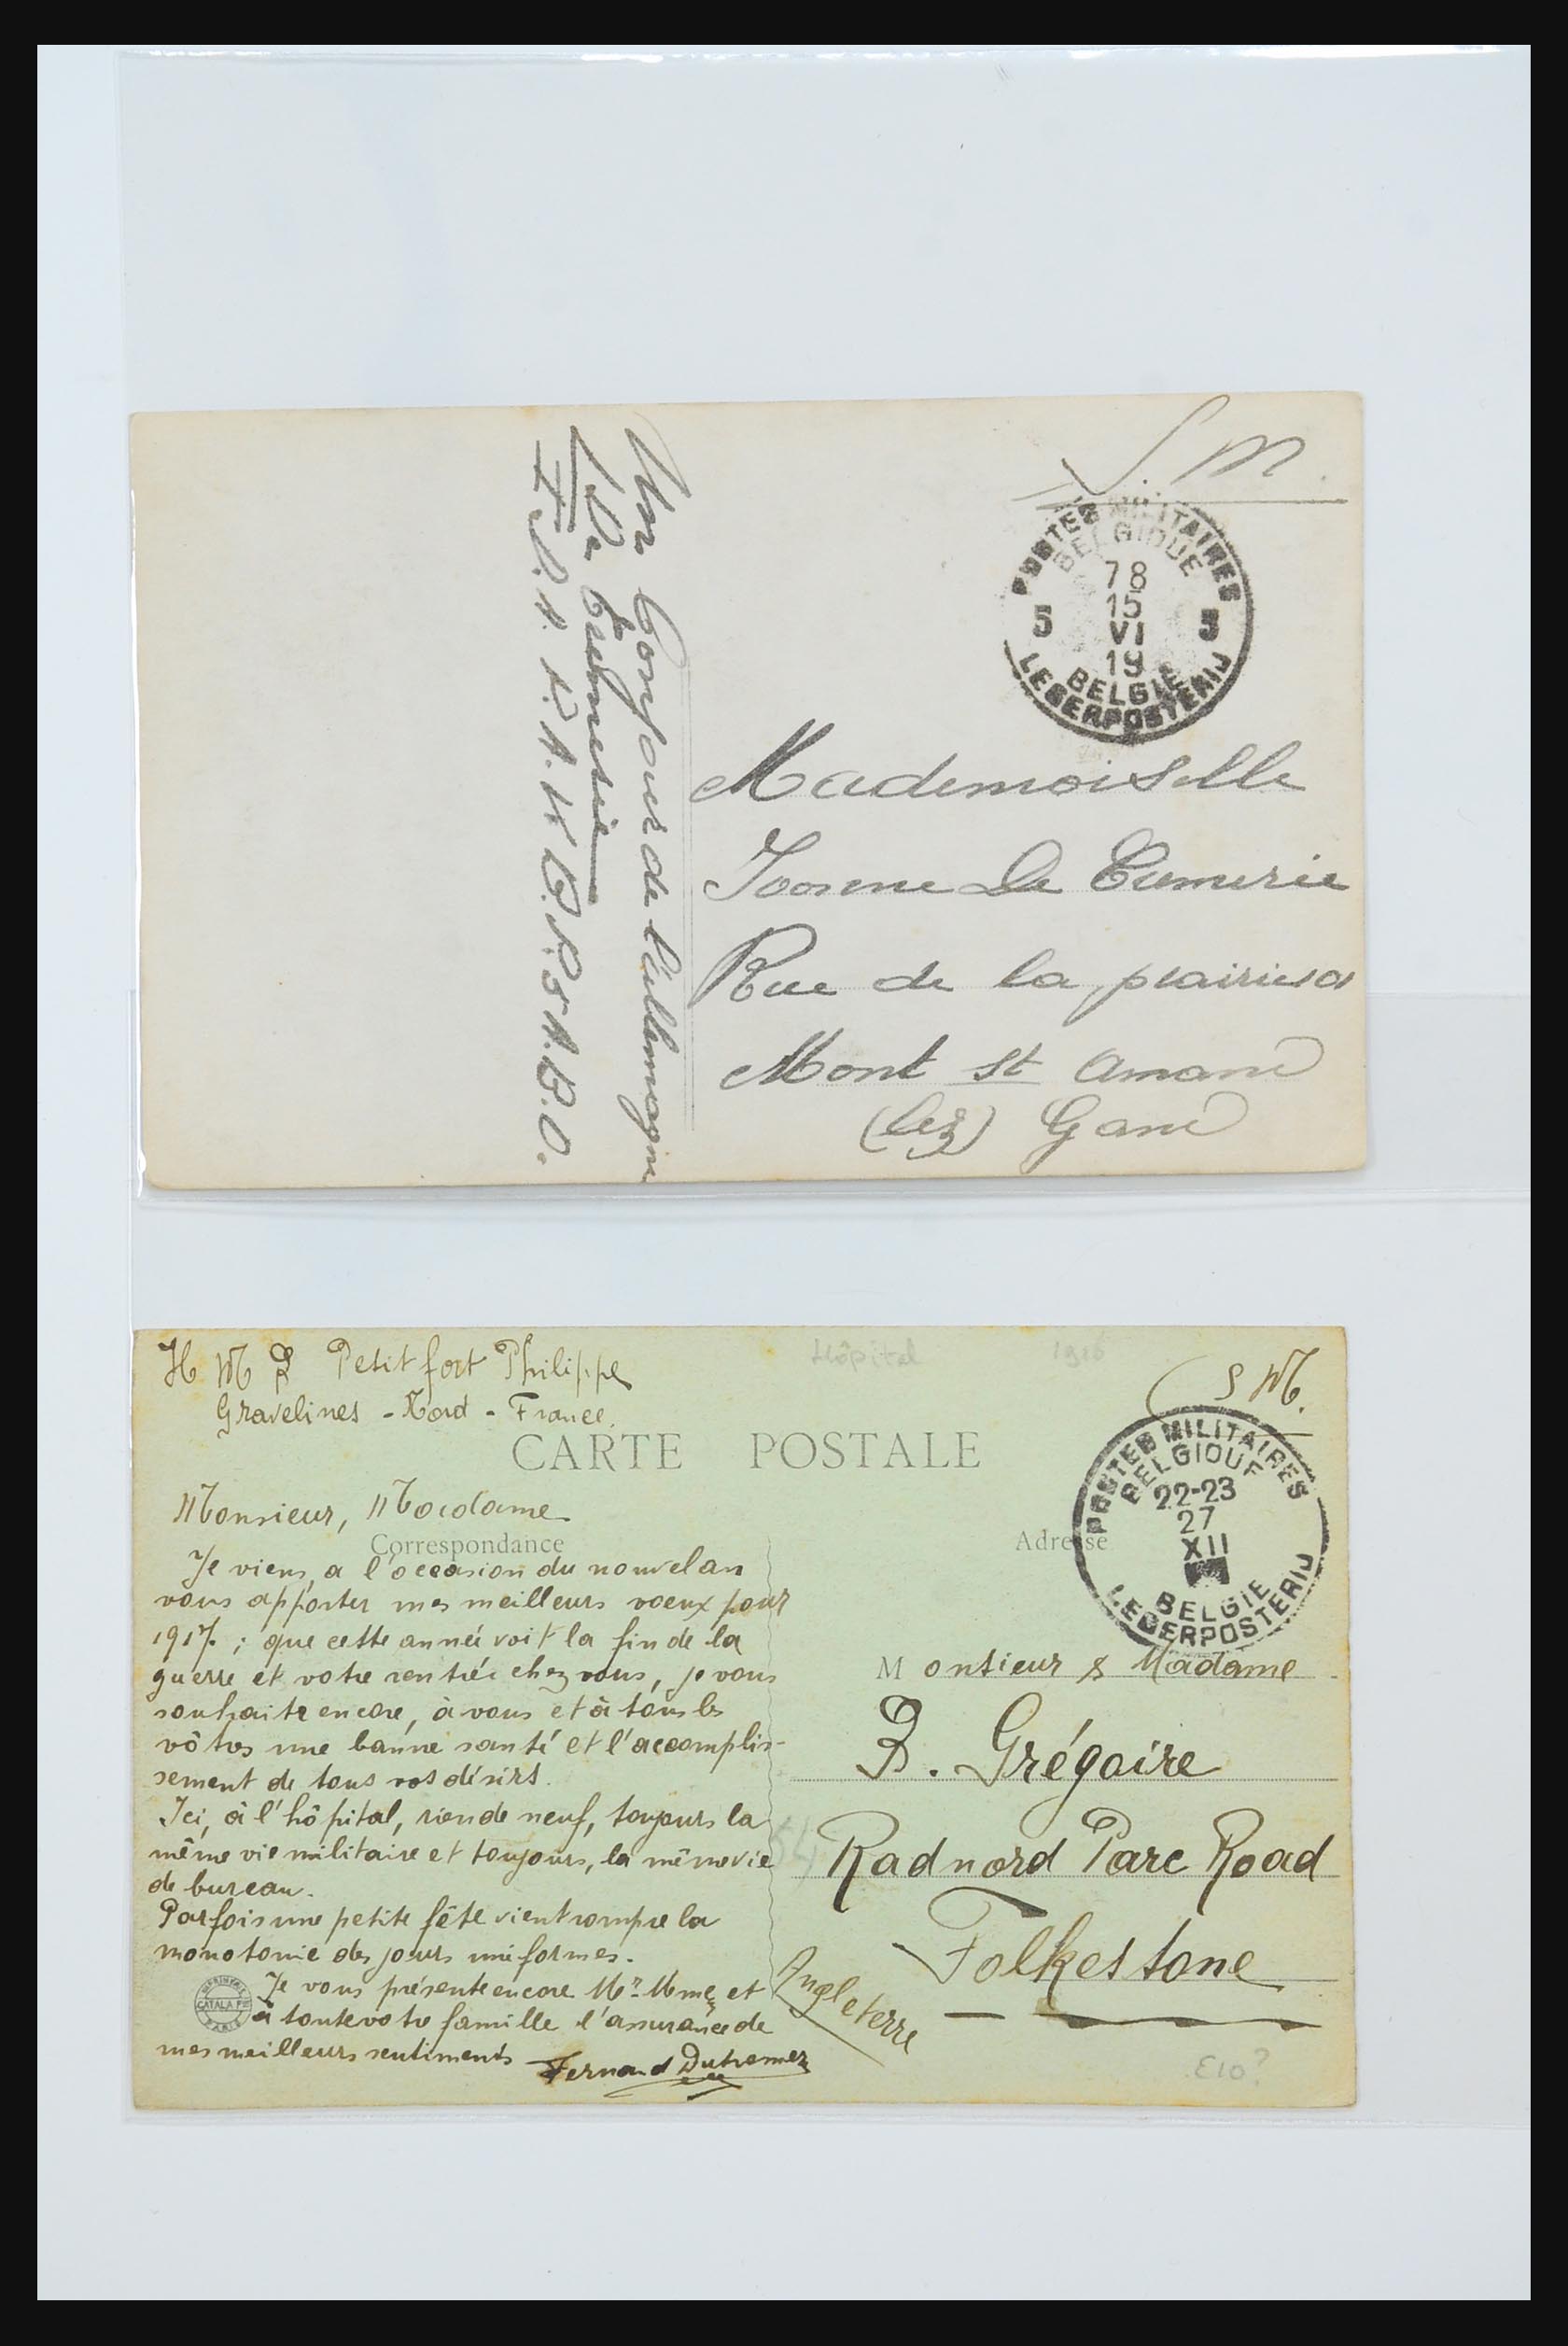 S. M.
POSTES MILITAIRES
BELGIQUE
78
15
VI
19
5 5
BELGIE
LEGERPOSTERIJ
Mademoiselle
Ivonne De Cumerie
Rue de la prairie
Mont St Amand
(lez) Gand
Un bonjour de l'allemagne
De Cumerie
H M B Petit fort Philippe
Gravelines - Nord - France.
Hôpital 1916
S M.
CARTE POSTALE
POSTES MILITAIRES
BELGIQUE
22-23
27
XII
BELGIE
LEGERPOSTERIJ
Monsieur, Madame
Correspondance
Adresse
Je viens, a l'occasion du nouvel an
vous apporter mes meilleurs voeux pour
1917 ; que cette année voit la fin de la
guerre et votre rentrée chez vous, je vous
souhaite encore, à vous et à tous les
vôtres une bonne santé et l'accomplis-
sement de tous vos désirs.
Ici, à l'hôpital, rien de neuf, toujours la
même vie militaire et toujours, la même vie
de bureau.
Parfois une petite fête vient rompre la
monotonie des jours uniformes.
Je vous présente encore Mr. Mme, et
à toute votre famille l'assurance de
mes meilleurs sentiments
Fernand Dutremez
IMPRIMERIE
CATALA FRES
PARIS
Monsieur & Madame
B. Grégoire
Radnord Parc Road
Folkestone
Angleterre
£10?